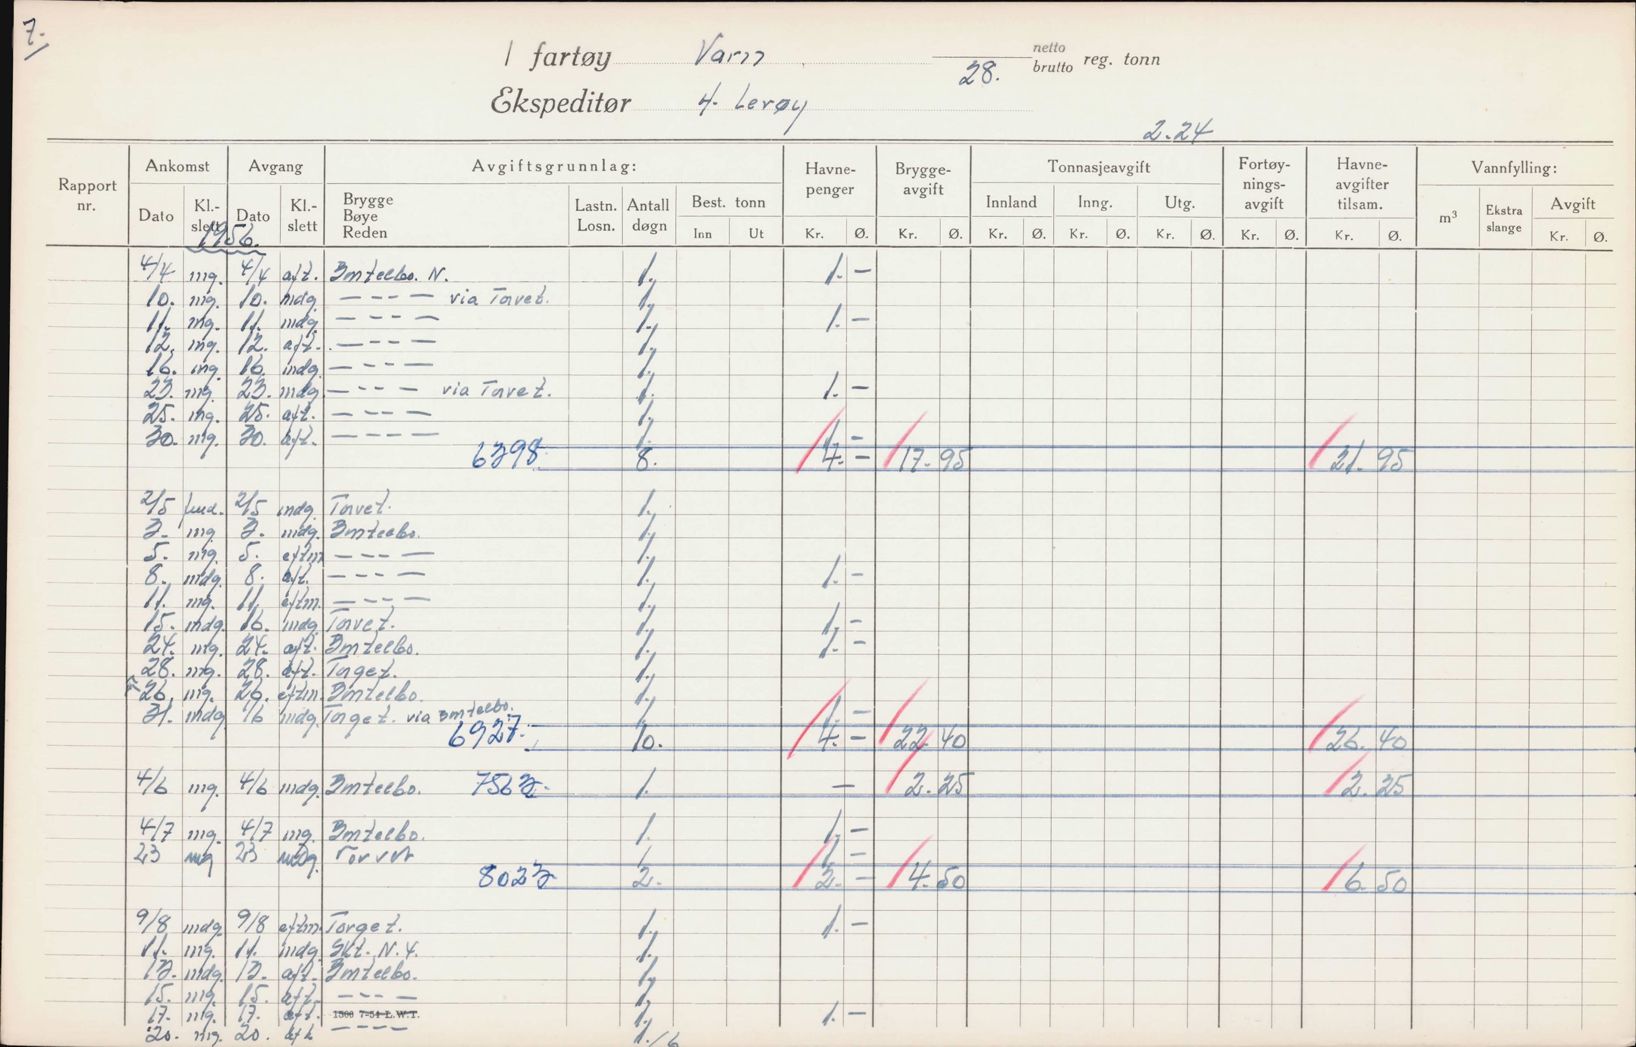 7.
1 fartøy Varn 28. netto brutto reg. tonn
Ekspeditør H. Lerøy
2.24
Rapport nr. Ankomst Avgang Avgiftsgrunnlag: Havne-penger Brygge-avgift Tonnasjeavgift Fortøy-nings-avgift Havne-avgifter tilsam. Vannfylling:
Dato Kl.-slett Dato Kl.-slett Brygge Bøye Reden Lastn. Losn. Antall døgn Best. tonn Innland Inng. Utg. m³ Ekstra slange Avgift
Inn Ut Kr. Ø. Kr. Ø. Kr. Ø. Kr. Ø. Kr. Ø. Kr. Ø. Kr. Ø. Kr. Ø.
1956.
4/4 mg. 4/4 aft. N. 1. 1. —
10. mg. 10. mdg. — - - — via Torvet. 1.
11. mg. 11. mdg. — - - — 1. 1. —
12. mg. 12. aft. — - - — 1.
16. mg. 16. mdg. — - - — 1.
23. mg. 23. mdg. — - - — via Torvet. 1. 1. —
25. mg. 25. aft. — - - — 1.
30. mg. 30. aft. — - - — 1. 1. —
6398 8. 4. — 17.95 21.95
2/5 2/5 mdg. Torvet. 1.
3. mg. 3. mdg. 1.
5. mg. 5. eftm — - - — 1.
8. mdg. 8. aft. — - - — 1. 1. —
11. mg. 11. eftm. — - - — 1.
15. mdg. 16. mdg. Torvet. 1. 1. —
24. mg. 24. aft. 1. 1. —
28. mg. 28. aft. Torget. 1.
26. mg. 26. eftm. 1.
31. mdg 1/6 mdg. Torget. via 1. 1. —
6927. 10. 4. — 22.40 26.40
4/6 mg. 4/6 mdg. 7563. 1. — 2.25 2.25
4/7 mg. 4/7 mg. 1. 1. —
23 mg 23 mdg. Torvet 1. 1. —
8023 2. 2. — 4.50 6.50
9/8 mdg. 9/8 eftm. Torget. 1. 1. —
11. mg. 11. mdg. Skt. N. 4. 1.
13. mdg. 13. aft. 1.
15. mg. 15. aft. — - - — 1.
17. mg. 17. aft. 1500 7-54 L.W.T. 1. 1. —
20. mg. 20. aft — - - — 1. /6